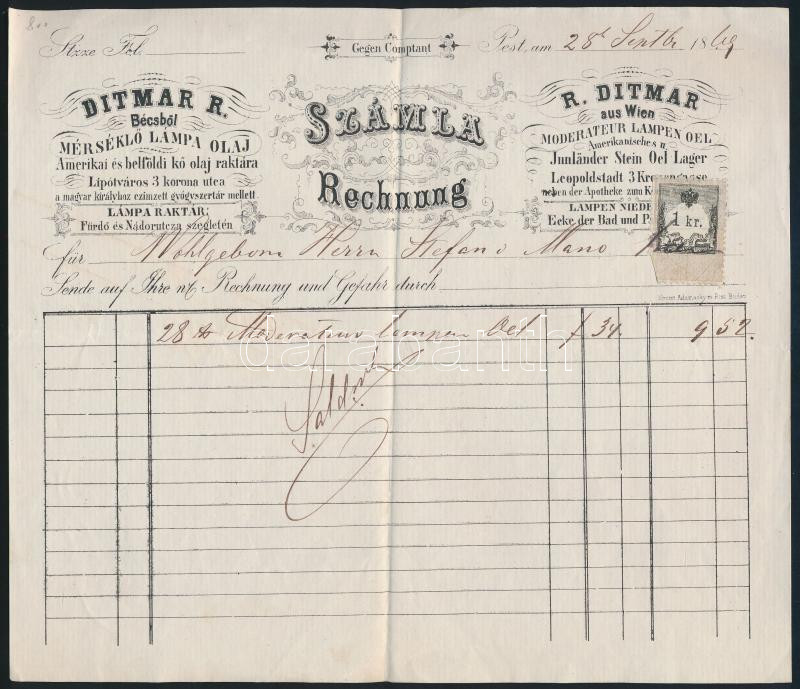 800
Stzze Fol.
Gegen Comptant
Pest, am 28t Septbr 1869
DITMAR R.
Bécsből
MÉRSÉKLŐ LÁMPA OLAJ
Amerikai és belföldi kő olaj raktára
Lipótváros 3 korona utca
a magyar királyhoz czimzett gyógyszertár mellett
LÁMPA RAKTÁR:
Fürdő és Nádorutcza szegletén
SZÁMLA
Rechnung
R. DITMAR
aus Wien
MODERATEUR LAMPEN OEL
Amerikanisches u.
Jnnländer Stein Oel Lager
Leopoldstadt 3 Kronengasse
neben der Apotheke zum
LAMPEN NIEDE
Ecke der Bad und
1 kr.
für Wohlgeborn Herrn Stefan v Mano
Sende auf Ihre w. Rechnung und Gefahr durch
28 lb Moderateur Lampen Oel f 34. 9 52.
Saldirt
darabanth